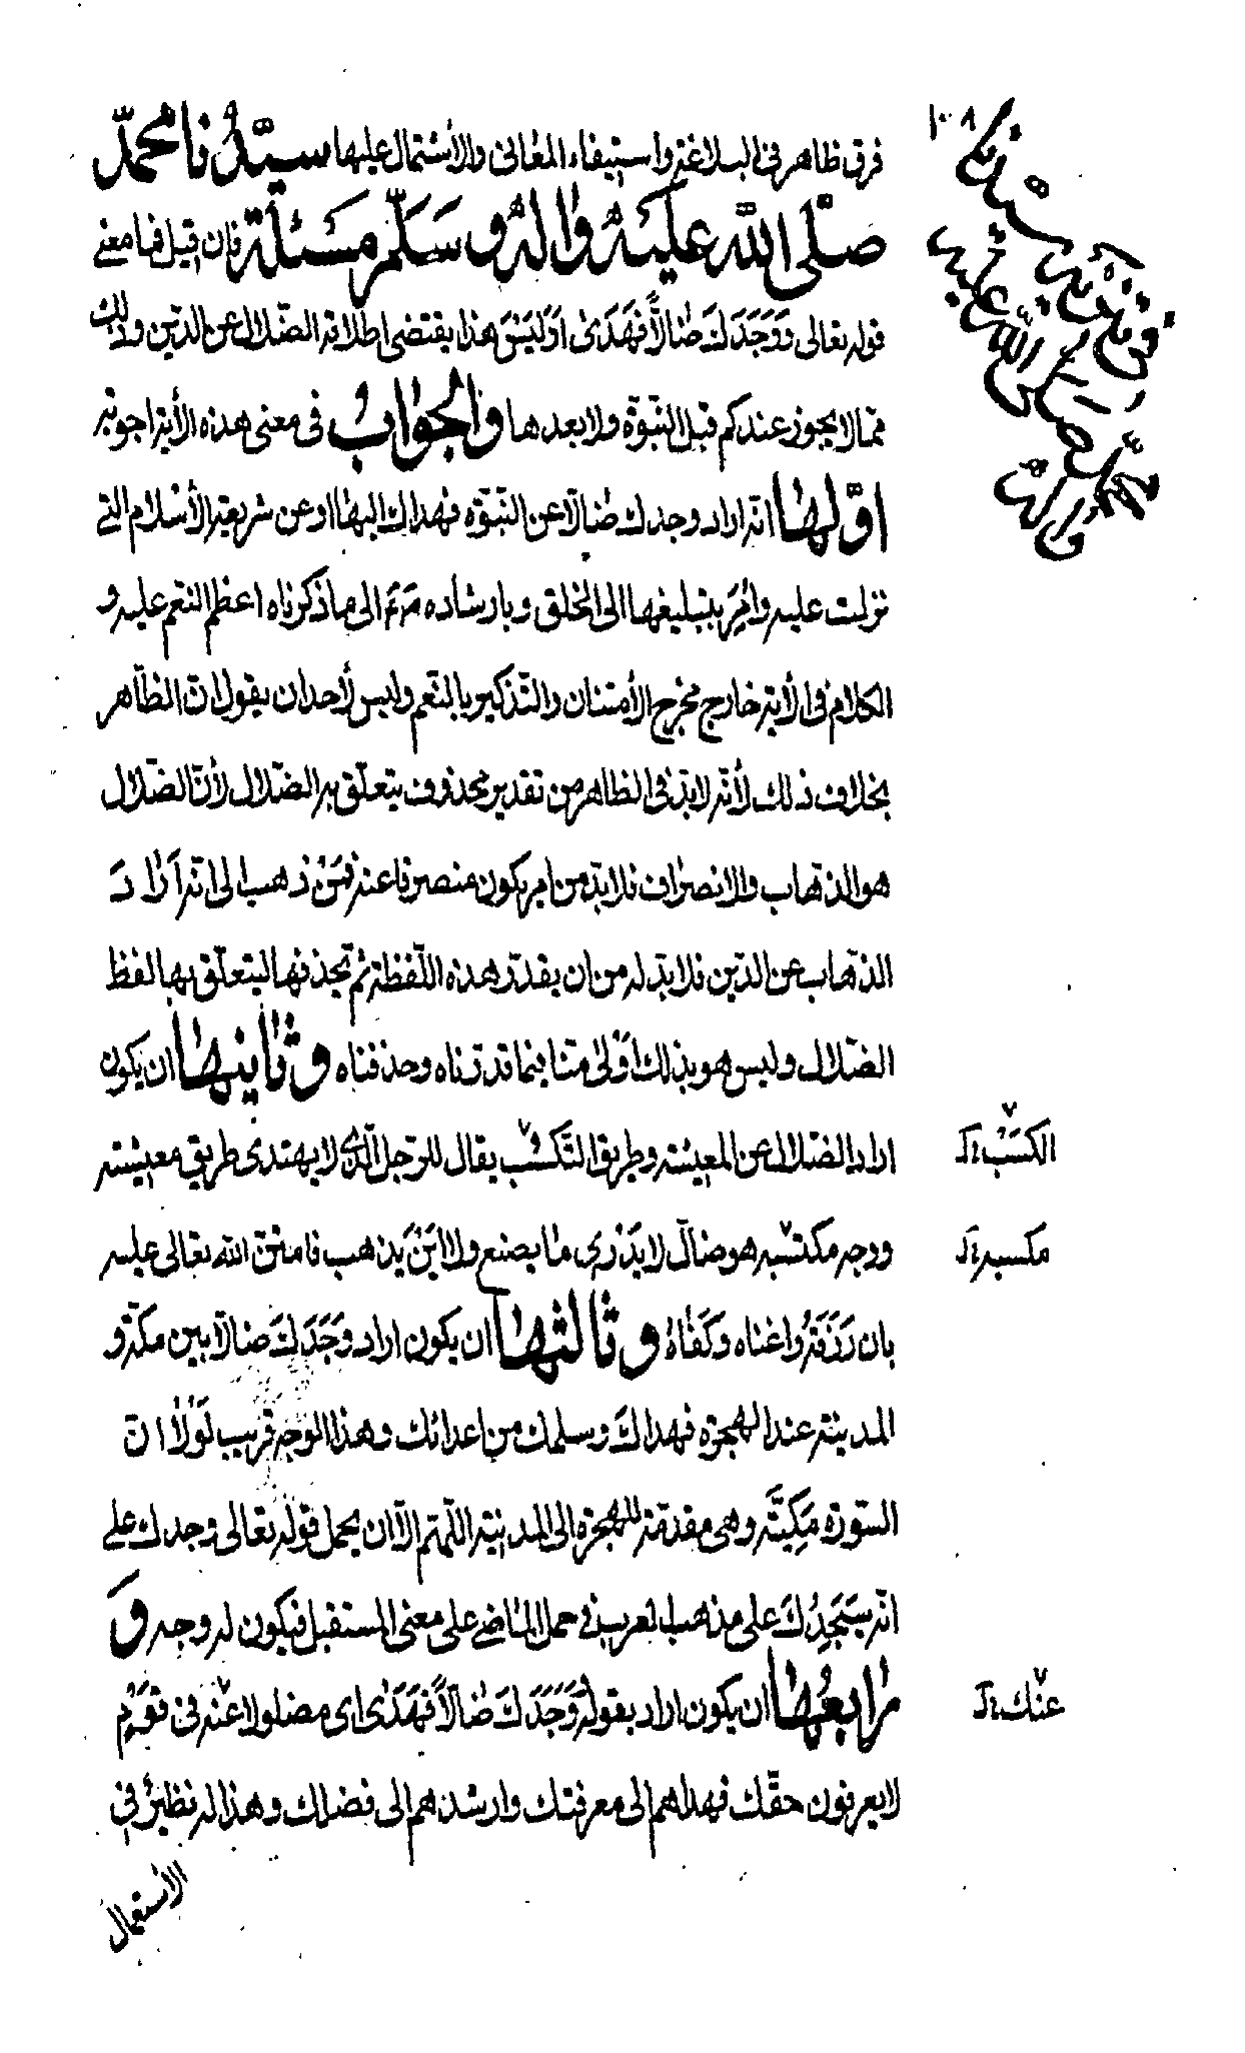 ١٠٨
فرق ظاهر في البلاغة واستيفاء المعاني والأشتمال عليها سيّدُنا محمّد
صلّى اللّه عليه واله وسلّم مسئلة فان قيل فما معنى
قوله تعالى وَوَجَدَكَ ضالًّا فَهَدَى اَوَليْسَ هذا يقتضى اطلاقه الضّلال عن الدّين وذلك
ممّا لا يجوز عندكم قبل النّبوّة ولا بعدها والجوابُ فى معنى هذه الأية اجوبة
اوّلها انّه اراد وجدك ضالّا عن النّبوّة فهداك اليها او عن شريعة الأسلام التى
نزلت عليه واُمِرَ بتبليغها الى الخلق وبارشاده الى ما ذكرناه اعظم النعم عليه و
الكلام فى الأية خارج مخرج الأمتنان والتّذكير بالنّعم وليس لأحد ان يقول انّ الظّاهر
بخلاف ذلك لأنّه لا بدّ فى الظاهر من تقدير محذوف يتعلّق به الضّلال لأنّ الضّلال
هو الذّهاب والانصراف فلا بدّ من امر يكون منصرفا عنه فمَنْ ذهب الى انّه اَرَادَ
الذّهاب عن الدّين فلا بدّ له من ان يقدّر هذه اللّفظة ثم يحذفها ليتعلّق بها لفظ
الضّلال وليس هو بذلك اَوْلى منّا فيما قدّرناه وحذفناه وثانيها ان يكون
اراد الضّلال عن المعيشة وطريق التّكسّب يقال للرّجل الّذى لا يهتدى طريق معيشته
ووجه مكتسبه هو ضالّ لا يَدْرى ما يصنع ولا اَيْنَ يذهب فامتنّ اللّه تعالى عليه
بان رَزَقَهُ واغناه وكَفاهُ وثالثها ان يكون اراد ووَجَدَكَ ضالّا بين مكّة و
المدينة عند الهجرة فهداكَ وسلمك من اعدائك وهذا الوجه قريب لَوْلا انّ
السّورة مَكِيَّة وهى مقدّمة للهجرة الى المدينة اللّهمّ الاّ ان يحمل قوله تعالى وجدك على
انّه سَيَجِدُكَ على مذهب العرب فى حمل الماضى على معنى المستقبل فيكون له وجه وَ
رابعها ان يكون اراد بقوله وَوَجَدَكَ ضالًّا فَهَدَى اى مضلولا عنه فى قَوْمٍ
لا يعرفون حقّك فهداهم الى معرفتك وارشدهم الى فضلك وهذا له نظير فى
الأستعمال
الكسْب خ ل
مكسبه خ ل
عنك خ ل